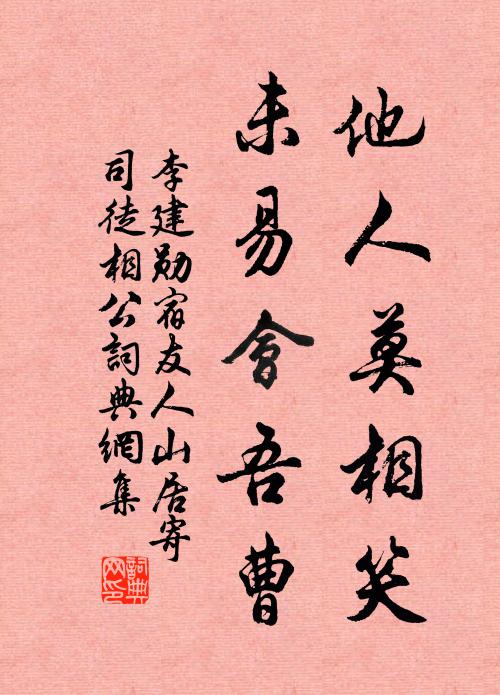 他人莫相笑
未易會吾曹
李建勋宿友人山居寄
司徒相公詞典網集
詞典
网印